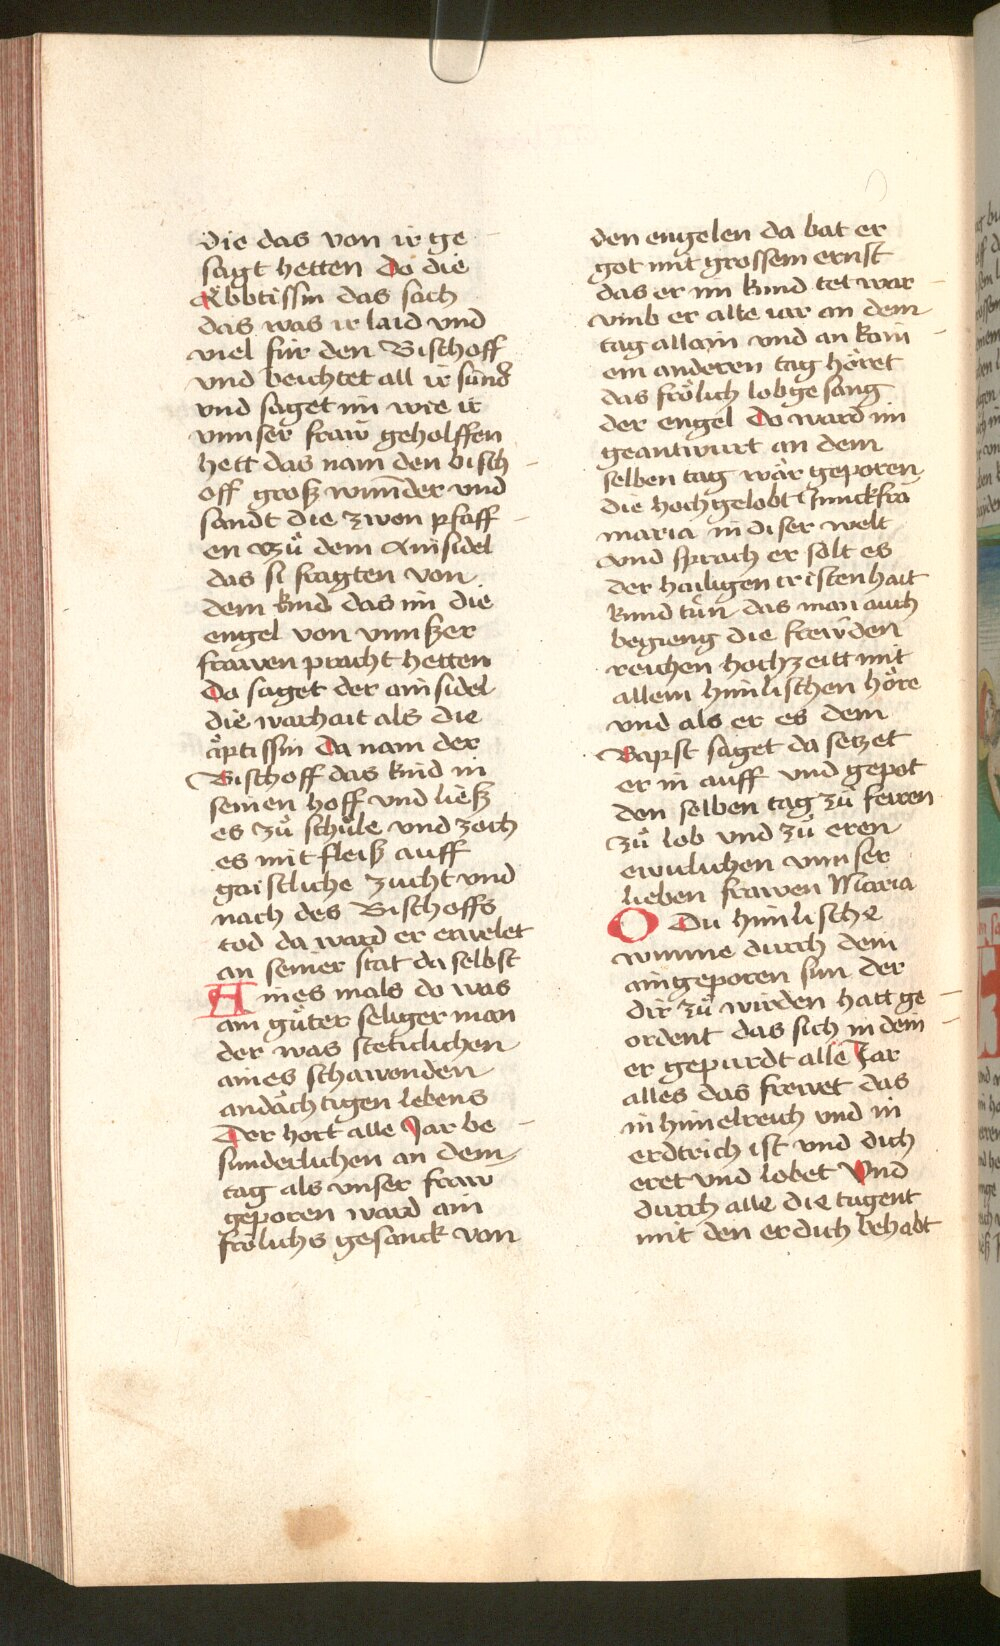 die das von ir ge
sagt hetten Do die
Abbtissin das sach
das was ir laid vnd
viel für den Bischoff
vnd beichtet all ir sünd
vnd saget im wie ir
vnnser fraw geholffen
hett das nam den bisch
off groß wunder vnd
sandt die zwen pfaff
en Zů dem Ainsidel
das si fragten von
dem kind das im die
engel von vnnßer
frawen pracht hetten
Do saget der ainsidel
die warhait als die
åptissin Da nam der
Bischoff das kind in
seinen hoff vnd ließ
es zů schůle vnd zoch
es mit fleiß auff
gaistliche zucht vnd
nach des Bischoffs
tod da ward er erwelet
an seiner stat da selbst
Aines mals do was
ain gůter seliger man
der was steticlichen
aines schawenden
andåchtigen lebens
Der hort alle Jar be
sunderlichen an dem
tag als vnser fraw
geporen ward ain
frölichs gesanck von
den engelen da bat er
got mit grossem ernst
das er im kund tet war
vmb er alle iar an dem
tag allain vnd an kain
em anderen tag höret
das frölich lobgesang
der engel Do ward im
geantwurt an dem
selben tag wår geporen
die hochgelobt Junckfra
maria in diser welt
vnd sprach er solt es
der hailigen cristenhait
kund tůn das man auch
begieng die frewden
reichen hochzeitt mit
allem himlischen höre
vnd als er es dem
Bapst saget da setzet
er in auff vnd gepot
den selben tag zů feiren
zů lob vnd zů eren
ewiclichen vnnser
lieben frawen Maria
O Du himlische
wunne durch dein
aingeporen sun der
dir zů wirden hatt ge
ordent das sich in dein
er gepurdt alle Jar
alles das frewet das
in himelreich vnd in
erdtrich ist vnd dich
eret vnd lobet Vnd
durch alle die tugent
mit den er dich behabt